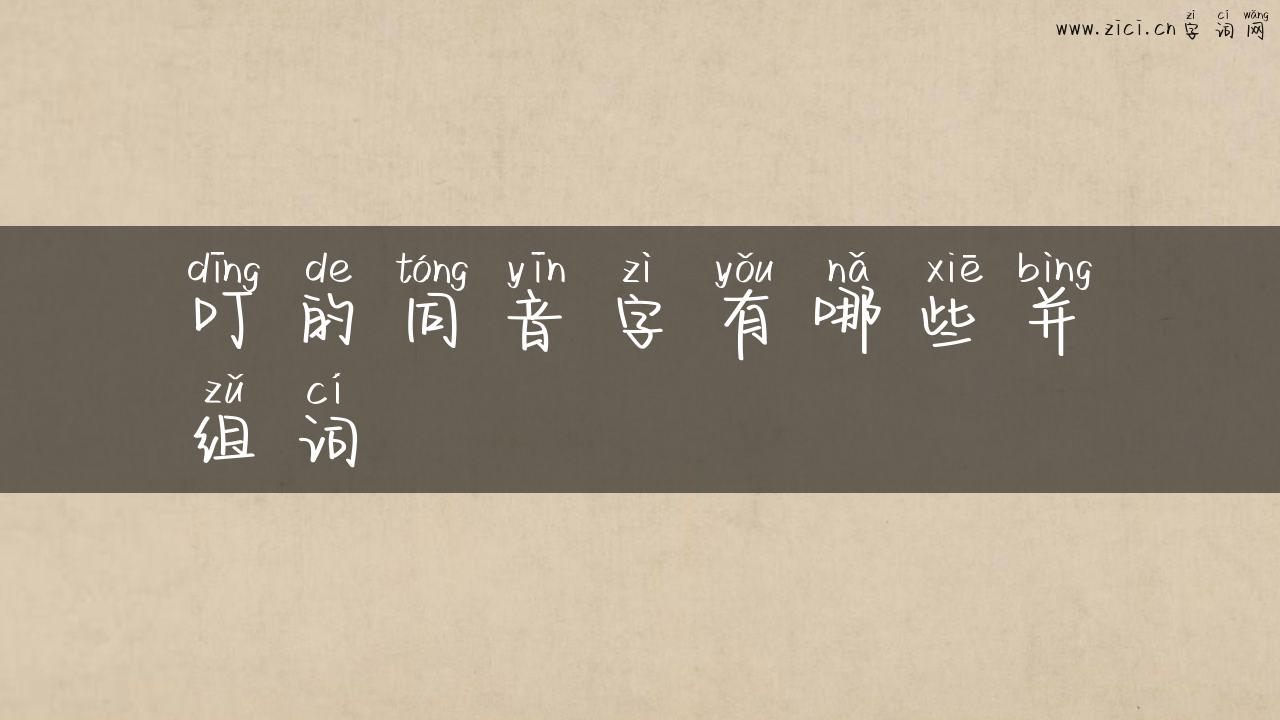 zì cí wǎng
www.zici.cn 字词网
dīng de tóng yīn zì yǒu nǎ xiē bìng
叮的同音字有哪些并
zǔ cí
组词